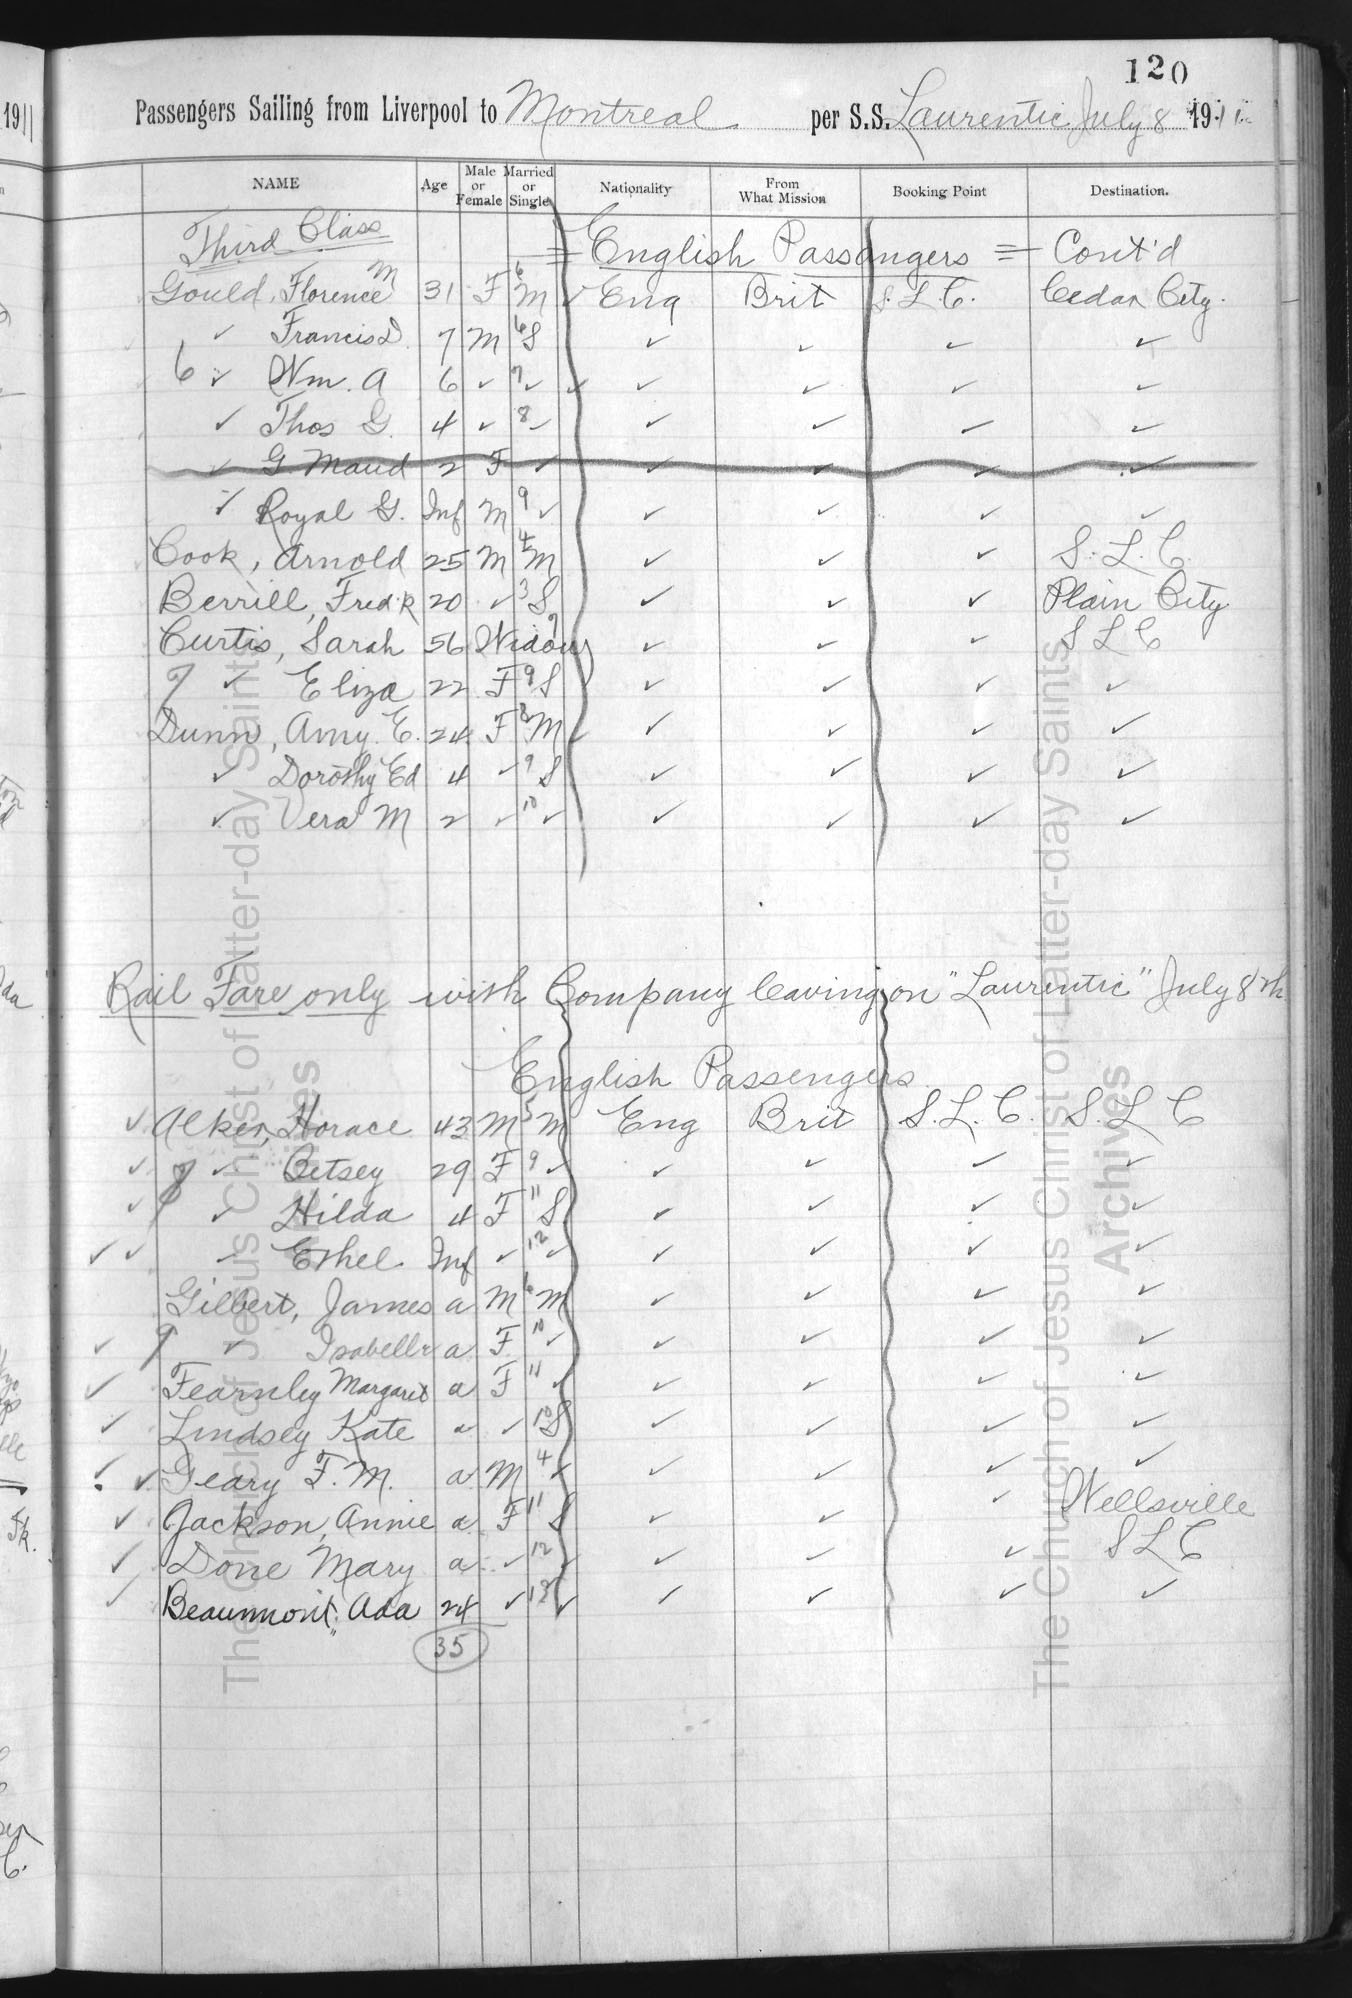 120
Passengers Sailing from Liverpool to Montreal per S.S. Laurentic July 8 1911
NAME Age Male or Female Married or Single Nationality From What Mission Booking Point Destination.
Third Class = English Passangers = Cont'd
Gould, Florence M 31 F 6 M ✓ Eng Brit S.L.C. Cedar City.
✓ Francis D. 7 M 6 S ✓ ✓ ✓ ✓
6 ✓ Wm. A 6 ✓ 7 ✓ ✓ ✓ ✓ ✓ ✓
✓ Thos G. 4 ✓ 8 ✓ ✓ ✓ ✓ ✓
✓ G Maud 2 F ✓ ✓ ✓ ✓ ✓
✓ Royal G. Inf M 9 ✓ ✓ ✓ ✓ ✓
Cook, Arnold 25 M 4 M ✓ ✓ ✓ S.L.C.
Berrill, Fred.R 20 ✓ 3 S ✓ ✓ ✓ Plain City
Curtis, Sarah 56 Widow 7 ✓ ✓ ✓ S L C
7 ✓ Eliza 22 F 9 S ✓ ✓ ✓ ✓
Dunn, Amy E. 24 F 8 M ✓ ✓ ✓ ✓
✓ Dorothy Ed 4 ✓ 9 S ✓ ✓ ✓ ✓
✓ Vera M 2 ✓ 10 ✓ ✓ ✓ ✓ ✓
Rail Fare only with Company leaving on "Laurentic" July 8th
English Passengers
✓ Alker, Horace 43 M 5 M Eng Brit S.L.C. S.L C
✓ 8 ✓ Betsey 29 F 9 ✓ ✓ ✓ ✓ ✓
✓ ✓ Hilda 4 F 11 S ✓ ✓ ✓ ✓
✓ ✓ ✓ Ethel Inf ✓ 12 ✓ ✓ ✓ ✓ ✓
Gilbert, James a M 6 M ✓ ✓ ✓ ✓
✓ 9 ✓ Isabella a F 10 ✓ ✓ ✓ ✓ ✓
✓ Fearnley Margaret a F 11 ✓ ✓ ✓ ✓ ✓
✓ Lindsey Kate a ✓ 10 S ✓ ✓ ✓ ✓
✓ ✓ Geary F. M. a M 4 ✓ ✓ ✓ ✓ ✓
✓ Jackson, Annie a F 11 S ✓ ✓ ✓ Wellsville
✓ Done Mary a ✓ 12 ✓ ✓ ✓ ✓ S L C
✓ Beaumont, Ada 24 ✓ 13 ✓ ✓ ✓ ✓ ✓
35
The Church of Jesus Christ of Latter-day Saints
Archives
The Church of Jesus Christ of Latter-day Saints
Archives
1911